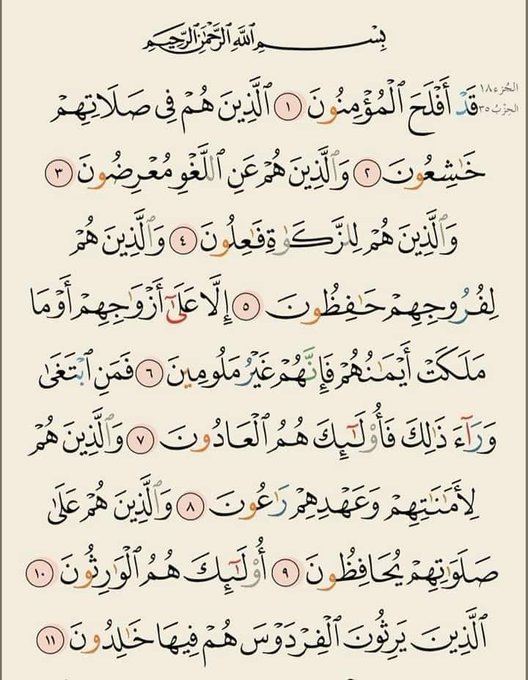 بِسْمِ ٱللَّهِ ٱلرَّحْمَٰنِ ٱلرَّحِيمِ
الجُزء ١٨
الحِزْبُ ٣٥
قَدْ أَفْلَحَ ٱلْمُؤْمِنُونَ ١ ٱلَّذِينَ هُمْ فِى صَلَاتِهِمْ
خَٰشِعُونَ ٢ وَٱلَّذِينَ هُمْ عَنِ ٱللَّغْوِ مُعْرِضُونَ ٣
وَٱلَّذِينَ هُمْ لِلزَّكَوٰةِ فَٰعِلُونَ ٤ وَٱلَّذِينَ هُمْ
لِفُرُوجِهِمْ حَٰفِظُونَ ٥ إِلَّا عَلَىٰٓ أَزْوَٰجِهِمْ أَوْ مَا
مَلَكَتْ أَيْمَٰنُهُمْ فَإِنَّهُمْ غَيْرُ مَلُومِينَ ٦ فَمَنِ ٱبْتَغَىٰ
وَرَآءَ ذَٰلِكَ فَأُو۟لَٰٓئِكَ هُمُ ٱلْعَادُونَ ٧ وَٱلَّذِينَ هُمْ
لِأَمَٰنَٰتِهِمْ وَعَهْدِهِمْ رَٰعُونَ ٨ وَٱلَّذِينَ هُمْ عَلَىٰ
صَلَوَٰتِهِمْ يُحَافِظُونَ ٩ أُو۟لَٰٓئِكَ هُمُ ٱلْوَٰرِثُونَ ١٠
ٱلَّذِينَ يَرِثُونَ ٱلْفِرْدَوْسَ هُمْ فِيهَا خَٰلِدُونَ ١١